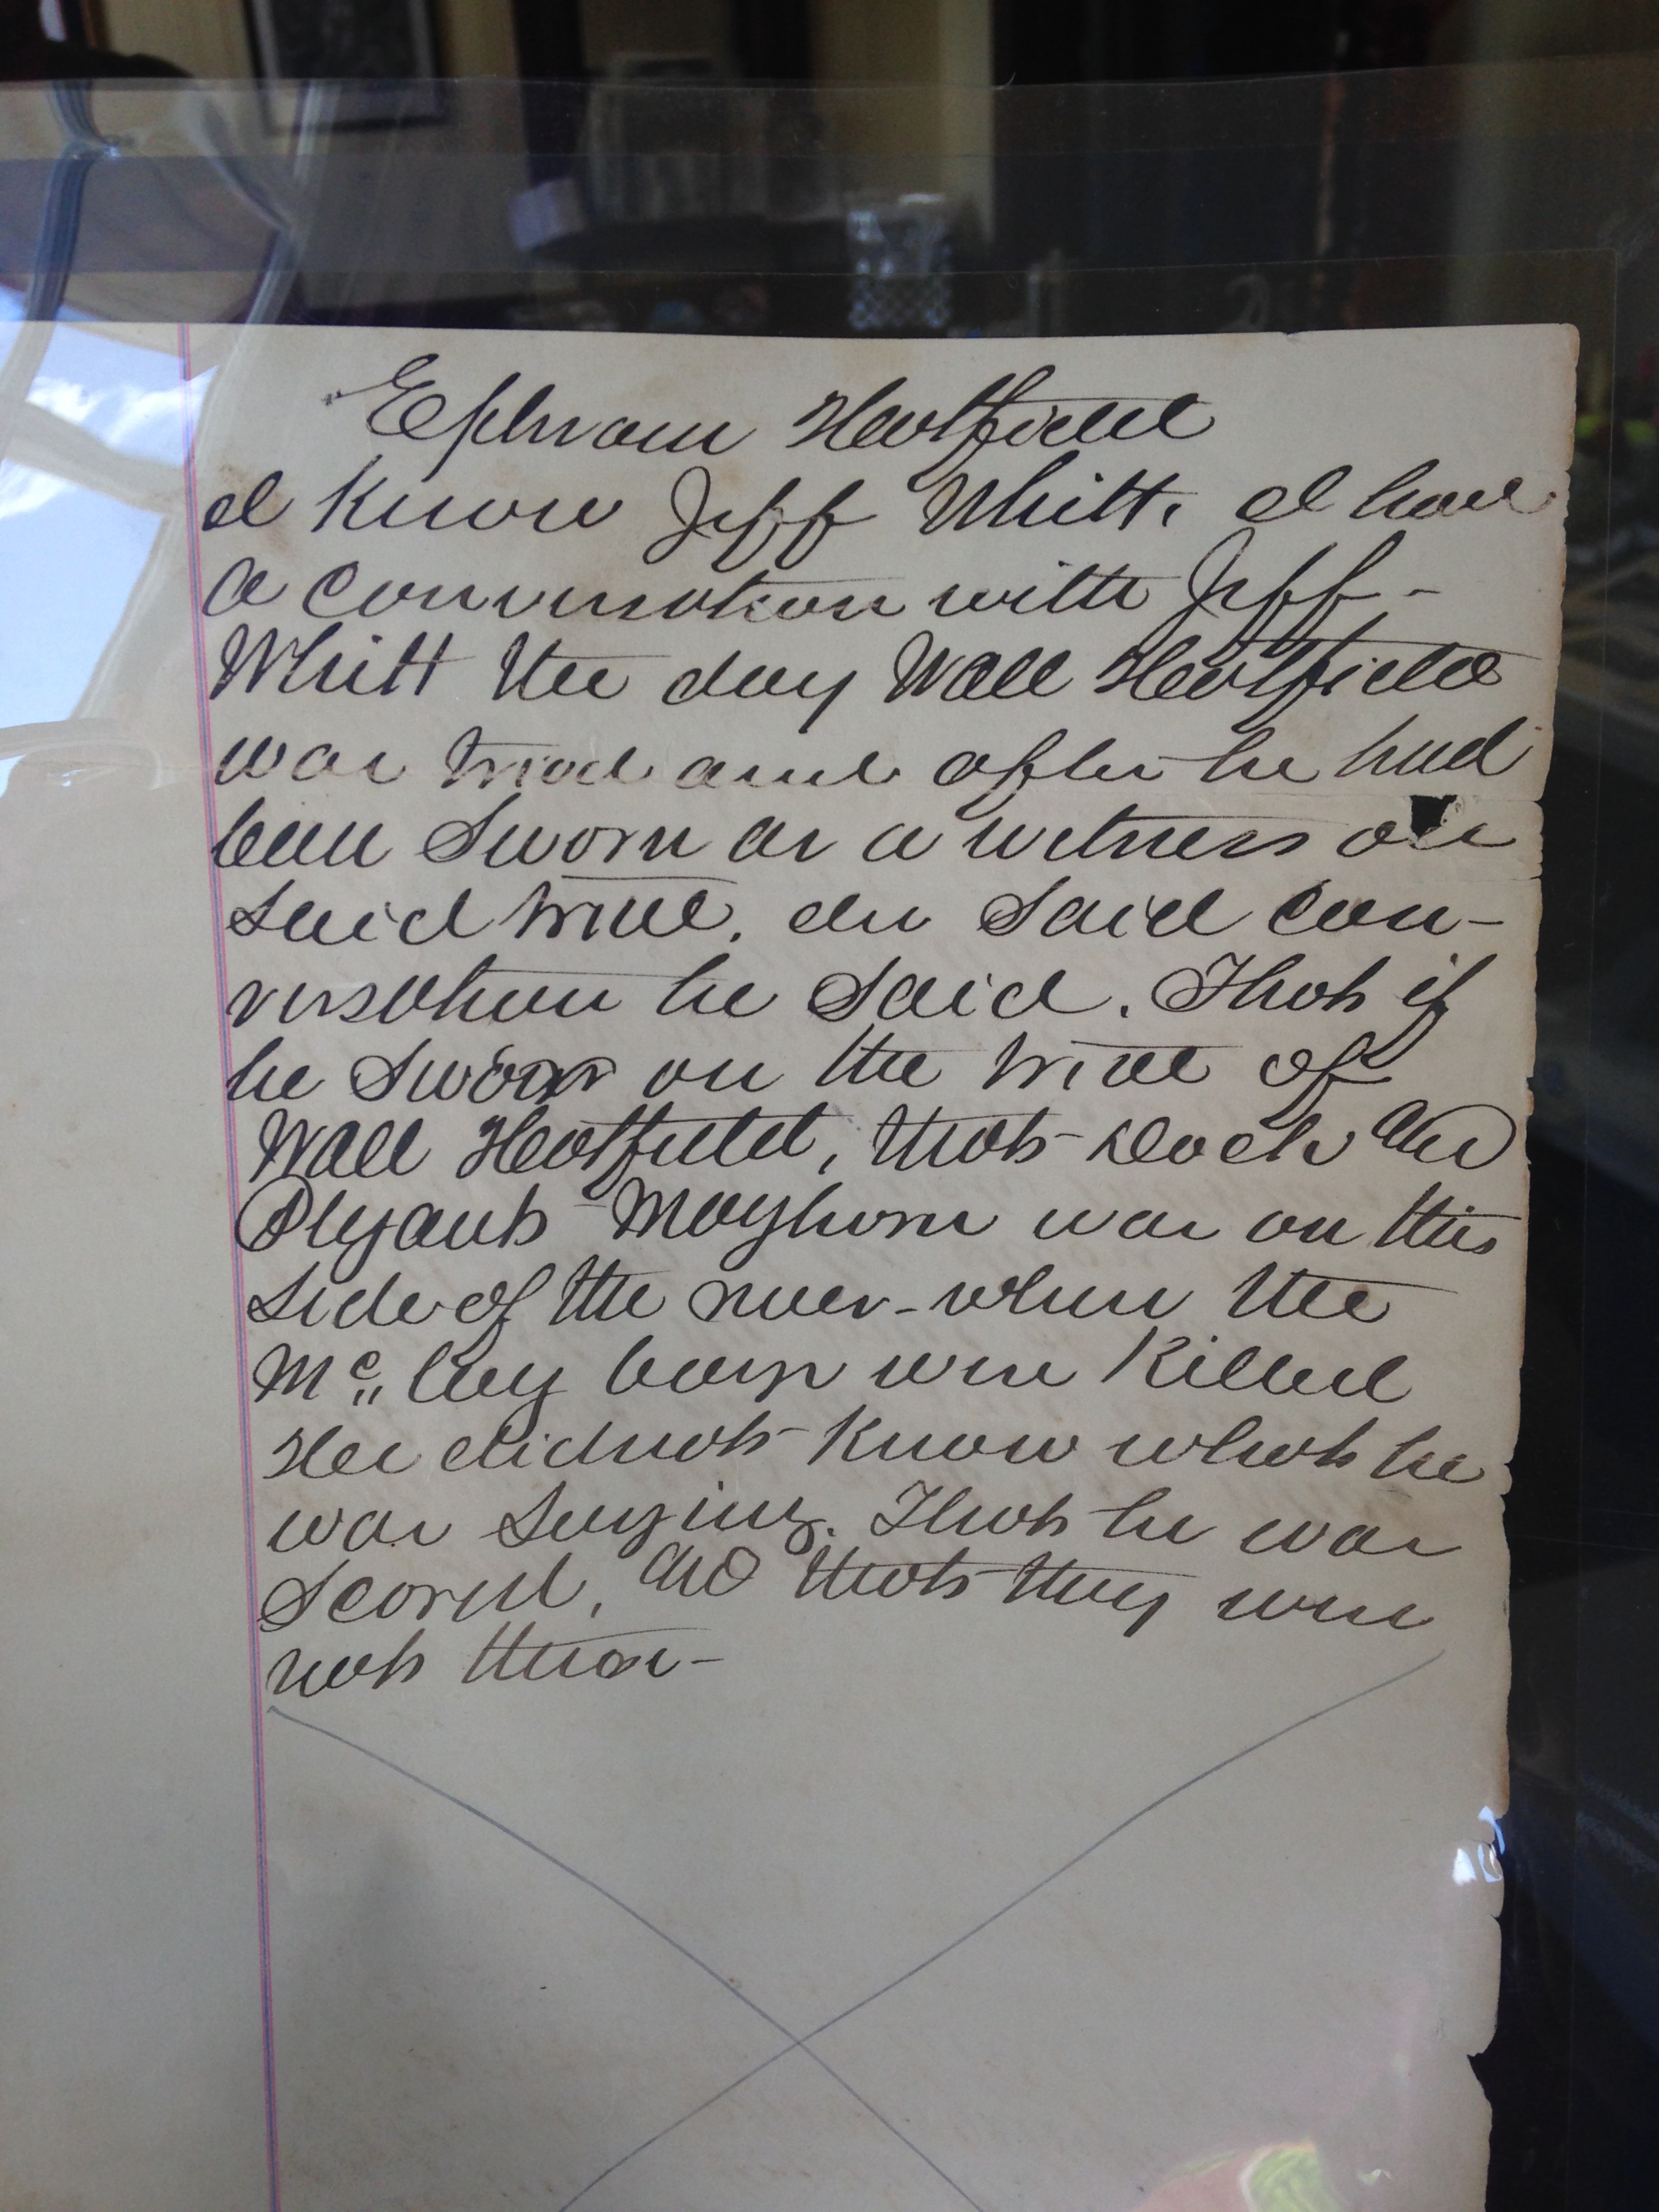 Ephraim Hatfield
I know Jeff Whitt. I had
a conversation with Jeff -
Whitt the day Wall Hatfield
was tried and after he had
been Sworn as a witness on
said trial. In Said con-
versation he Said. That if
he Sworn on the trial of
Wall Hatfield, that Dock and
Plyant Mayhorn was on this
side of the river - when the
Mc Coy boys were Killed
He did not Know what he
was saying. That he was
Scared, and that they were
not thar -